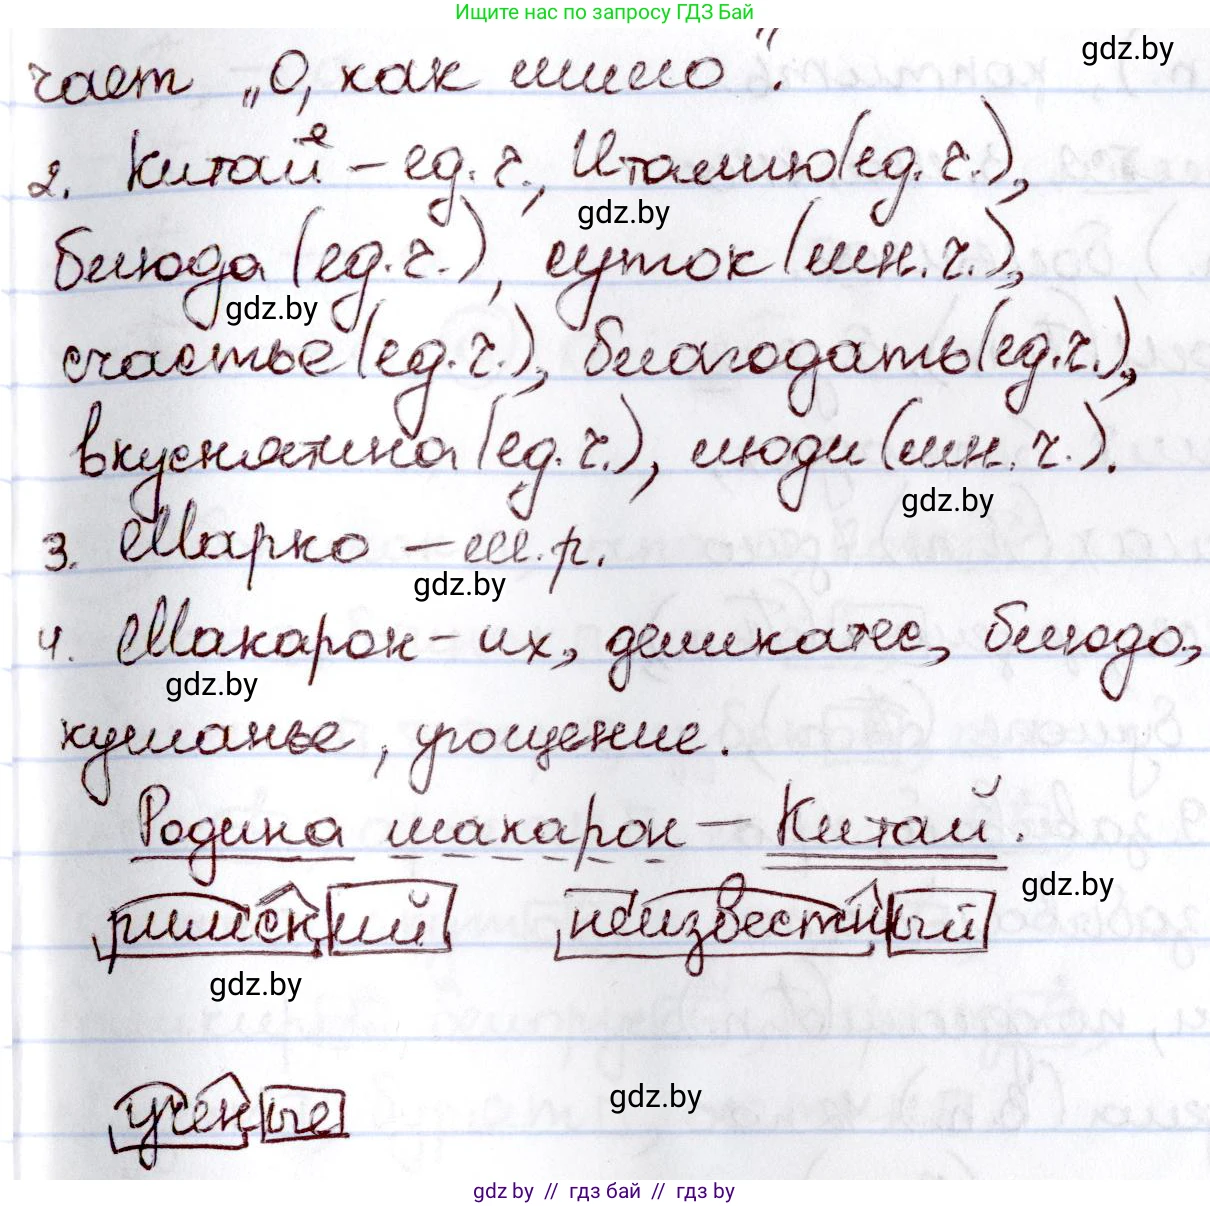 Ищите нас по запросу ГДЗ Бай
gdz.by
чает „О, как мило".
2. Китае – ед. ч., Италию (ед. ч.),
gdz.by
блюда (ед. ч.), суток (мн. ч.),
gdz.by
счастье (ед. ч.), благодать (ед. ч.),
вкуснятина (ед. ч.), люди (мн. ч.).
gdz.by
3. Марко – м. р.
gdz.by
4. Макарон – их, деликатес, блюдо,
gdz.by
кушанье, угощение.
Родина макарон – Китай.
gdz.by
римский неизвестный
gdz.by
gdz.by
ученые
gdz by // гдз бай // гдз by